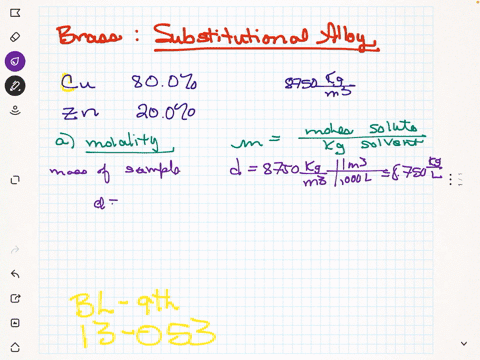 Brass : Substitutional Alloy
Cu 80.0% 8750 Kg/m3
Zn 20.0%
a) molality m = moles solute / Kg solvent
mass of sample d = 8750 Kg/m3 | 1m3/1000L = 8.750 kg/L
d =
BL - 9th
13-053